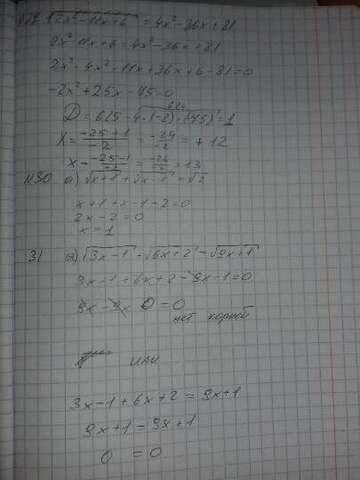 √2x²-11x+6 = 4x²-36x+81
2x²-11x+6=4x²-36x+81
2x²-4x²-11x+36x+6-81=0
-2x²+25x-75=0
D=625-4·(-2)·(-75)=1
x=(-25+1)/-2 = -24/-2 = +12
x=(-25-1)/-2 = -26/-2 = 13
N30 а) √x+1 + √x-1 = √2
x+1+x-1-2=0
2x-2=0
x=1
31 а) √3x-1 - √6x+2 = √9x+1
3x-1+6x+2-9x-1=0
9x-9x 0=0
нет корней
или
3x-1+6x+2=9x+1
9x+1=9x+1
0=0